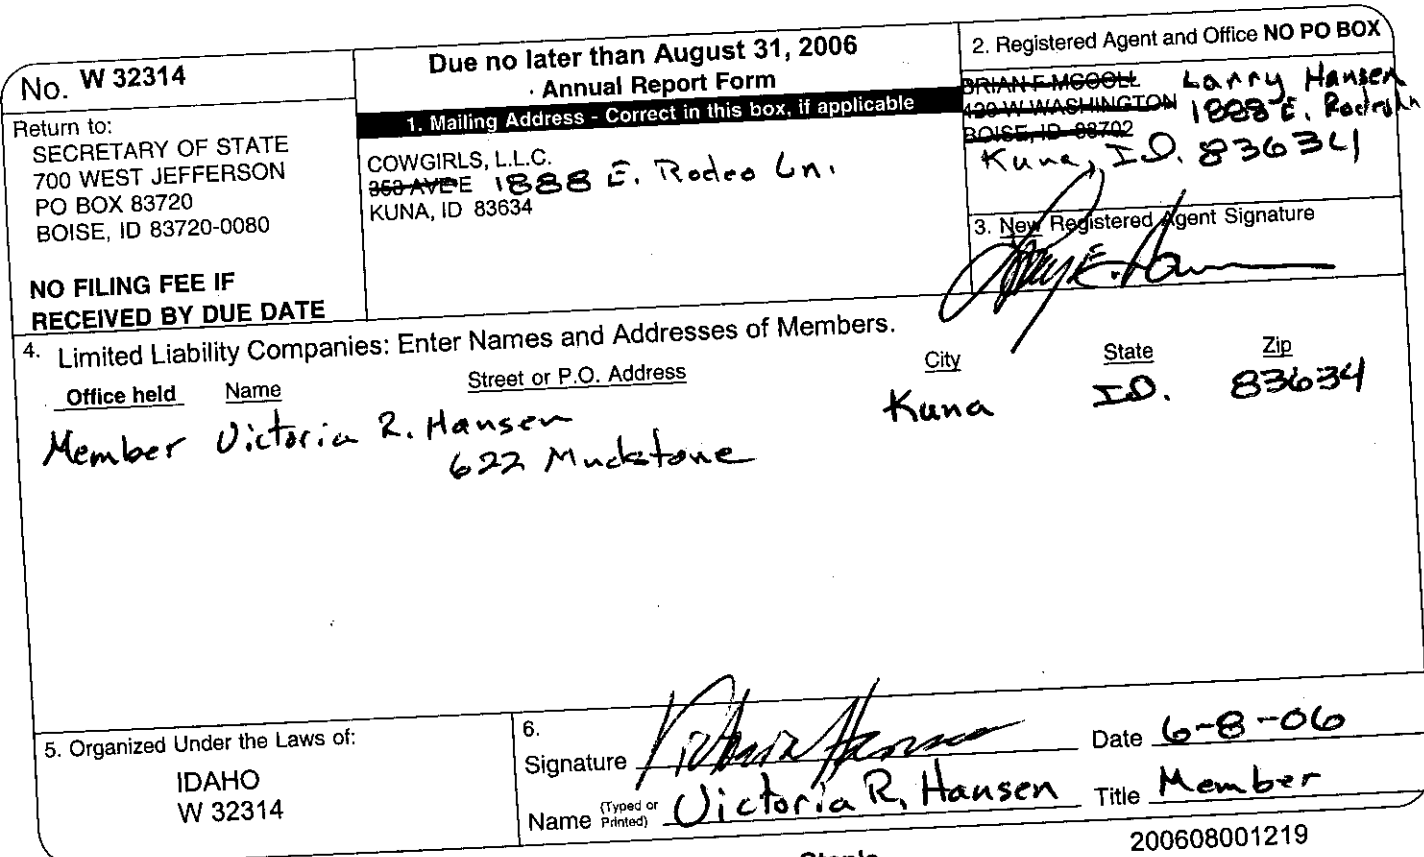 No. W 32314
Return to:
SECRETARY OF STATE
700 WEST JEFFERSON
PO BOX 83720
BOISE, ID 83720-0080
NO FILING FEE IF
RECEIVED BY DUE DATE
Due no later than August 31, 2006
Annual Report Form
1. Mailing Address - Correct in this box, if applicable
COWGIRLS, L.L.C.
353 AVE E 1888 E. Rodeo Ln.
KUNA, ID 83634
2. Registered Agent and Office NO PO BOX
BRIAN F MCCOLL Larry Hansen
420 W WASHINGTON 1888 E. Rodeo Ln
BOISE, ID 83702
Kuna, ID. 83634
3. New Registered Agent Signature
4. Limited Liability Companies: Enter Names and Addresses of Members.
Office held Name Street or P.O. Address City State Zip
Member Victoria R. Hansen Kuna ID. 83634
622 Mudstone
5. Organized Under the Laws of:
IDAHO
W 32314
6.
Signature Victoria Hansen Date 6-8-06
Name (Typed or Printed) Victoria R. Hansen Title Member
200608001219